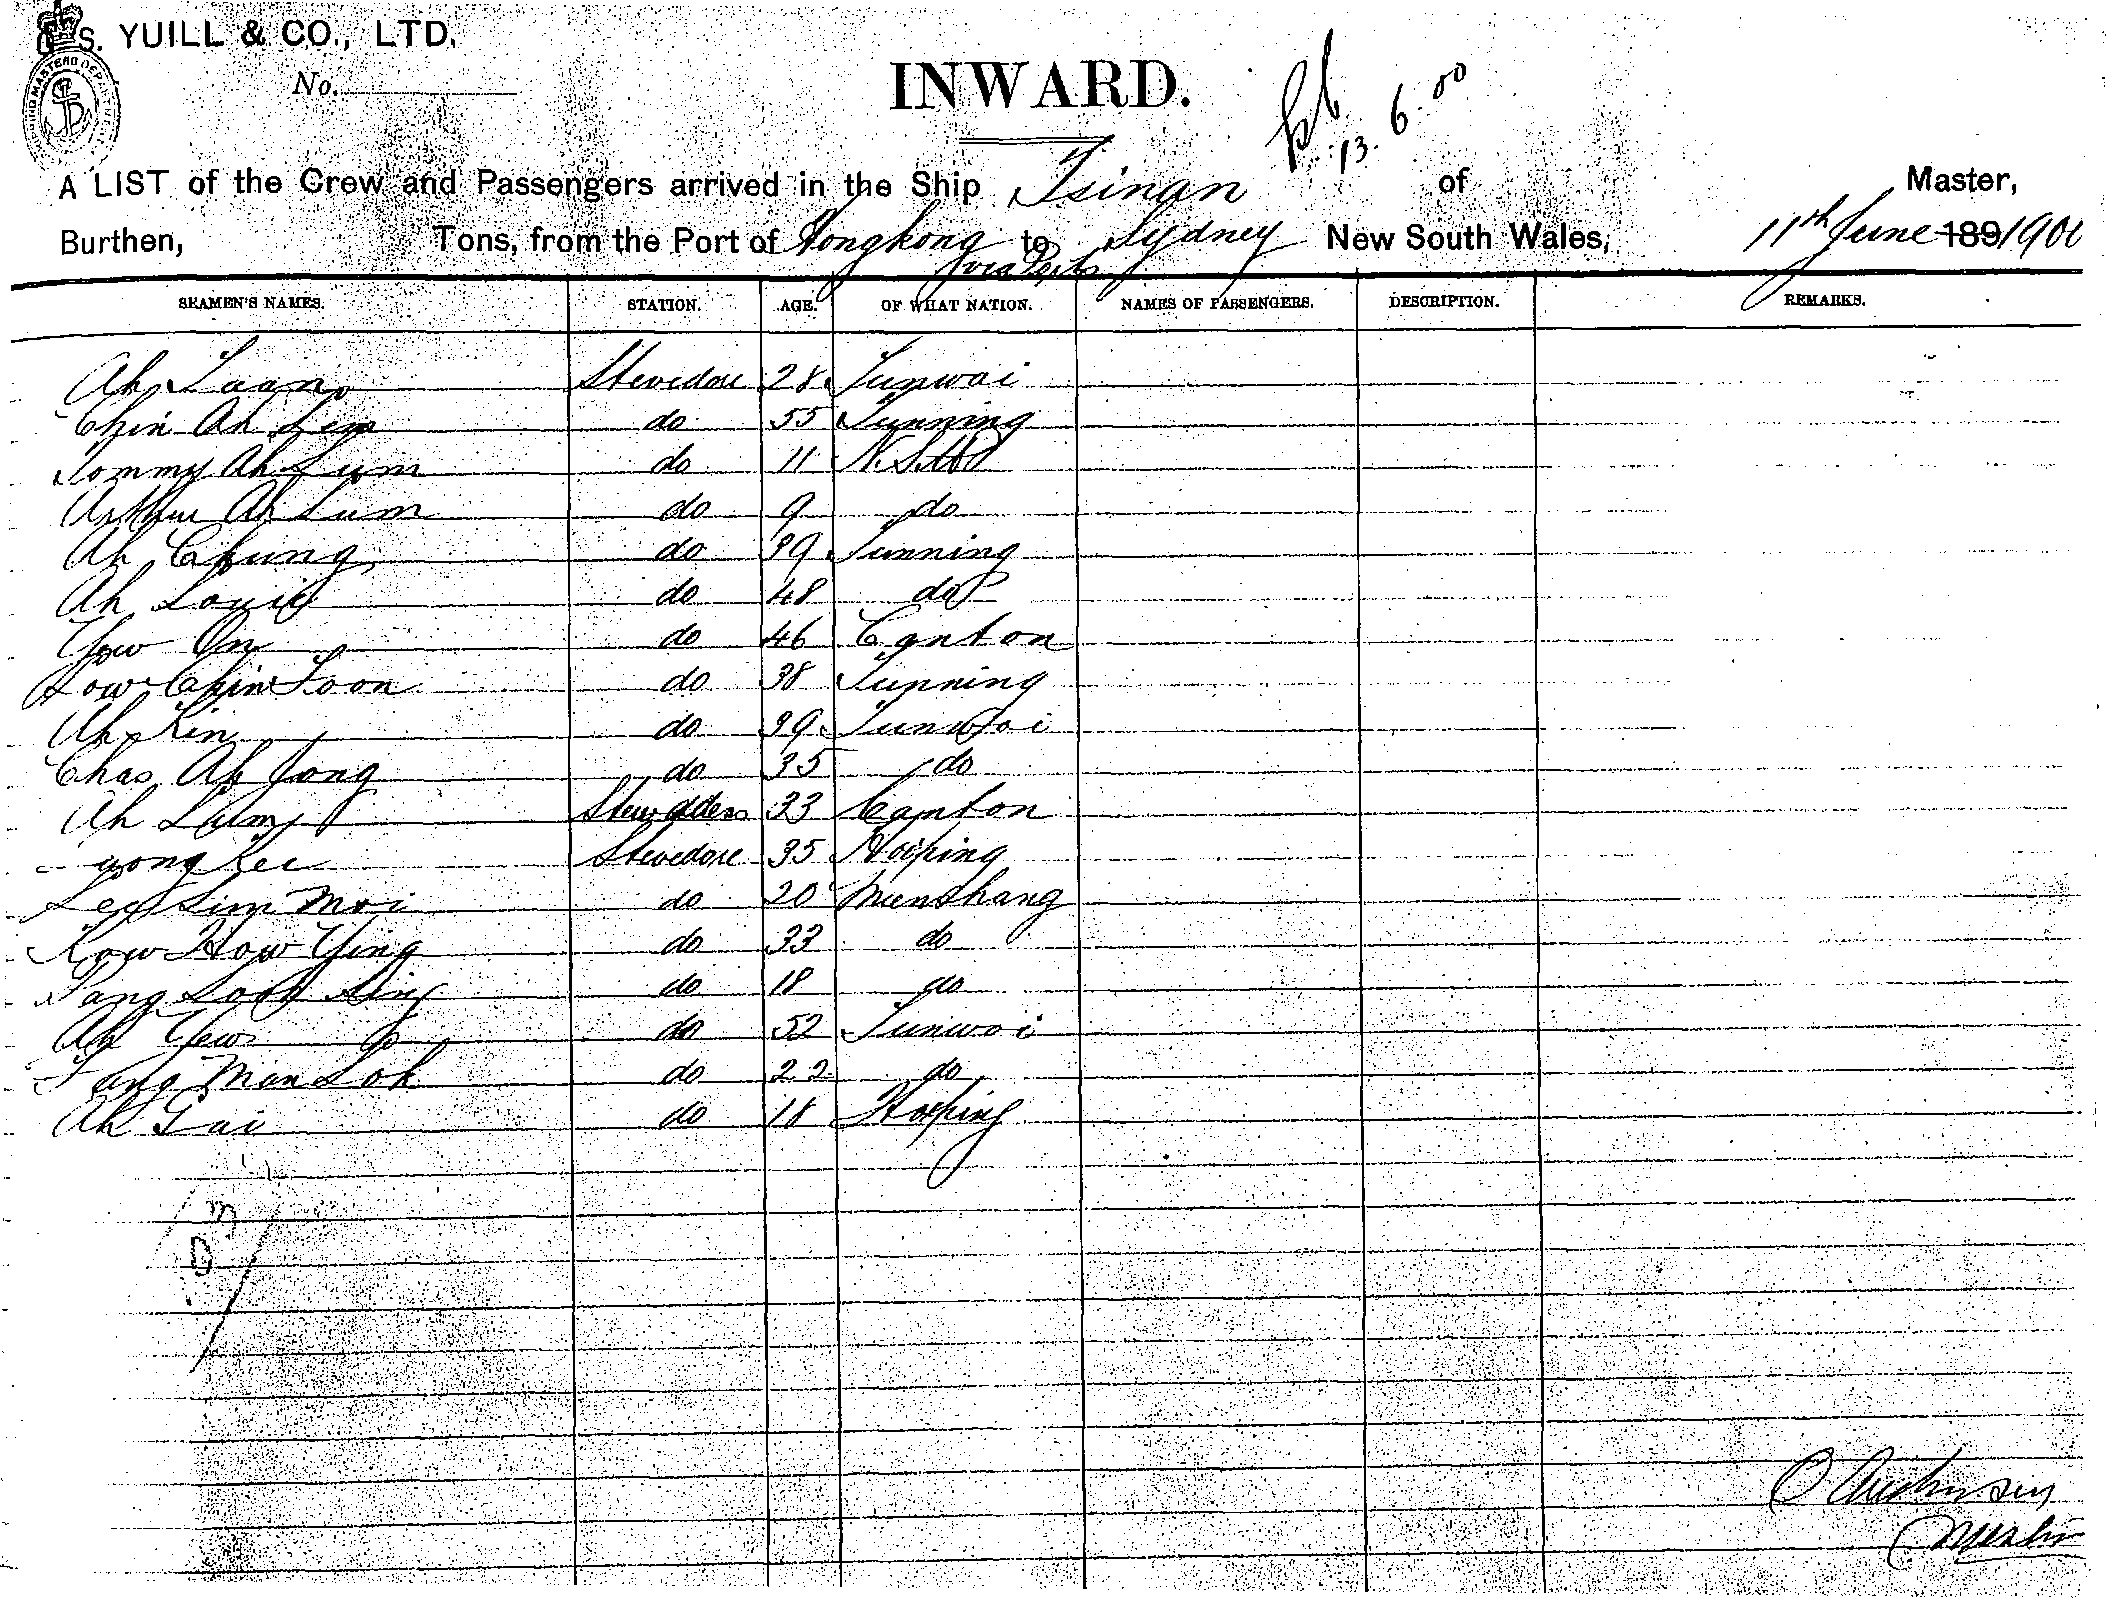 G. S. YUILL & CO., LTD.
No.
INWARD.
13.6.00
A LIST of the Crew and Passengers arrived in the Ship Tsinan of Master,
Burthen, Tons, from the Port of Hongkong to Sydney New South Wales, 11th June 189/1900
via Ports
SEAMEN'S NAMES. STATION. AGE. OF WHAT NATION. NAMES OF PASSENGERS. DESCRIPTION. REMARKS.
Ah Stevedore 28 Sunwai
Chin Ah Stevedore do 55 Sunning
Tommy Ah Lum do 11 N.S.W
Arthur Ah Lum do 9 do
Ah Chung do 39 Sunning
Ah Louie do 48 do
Yow On do 46 Canton
Low Chin Toon do 38 Sunning
Ah Kin do 39 Sunwoi
Chas Ah Gong do 35 do
Ah Lum 33 Canton
yong Lee Stevedore 35 Hoiping
Lee Lim Moi do 20 Munshang
Kow How Ying do 33 do
Pang Sing do 18 do
Ah Yew do 52 Sunwoi
Fang Man Loh do 22 do
Ah Gai do 18 Hoiping